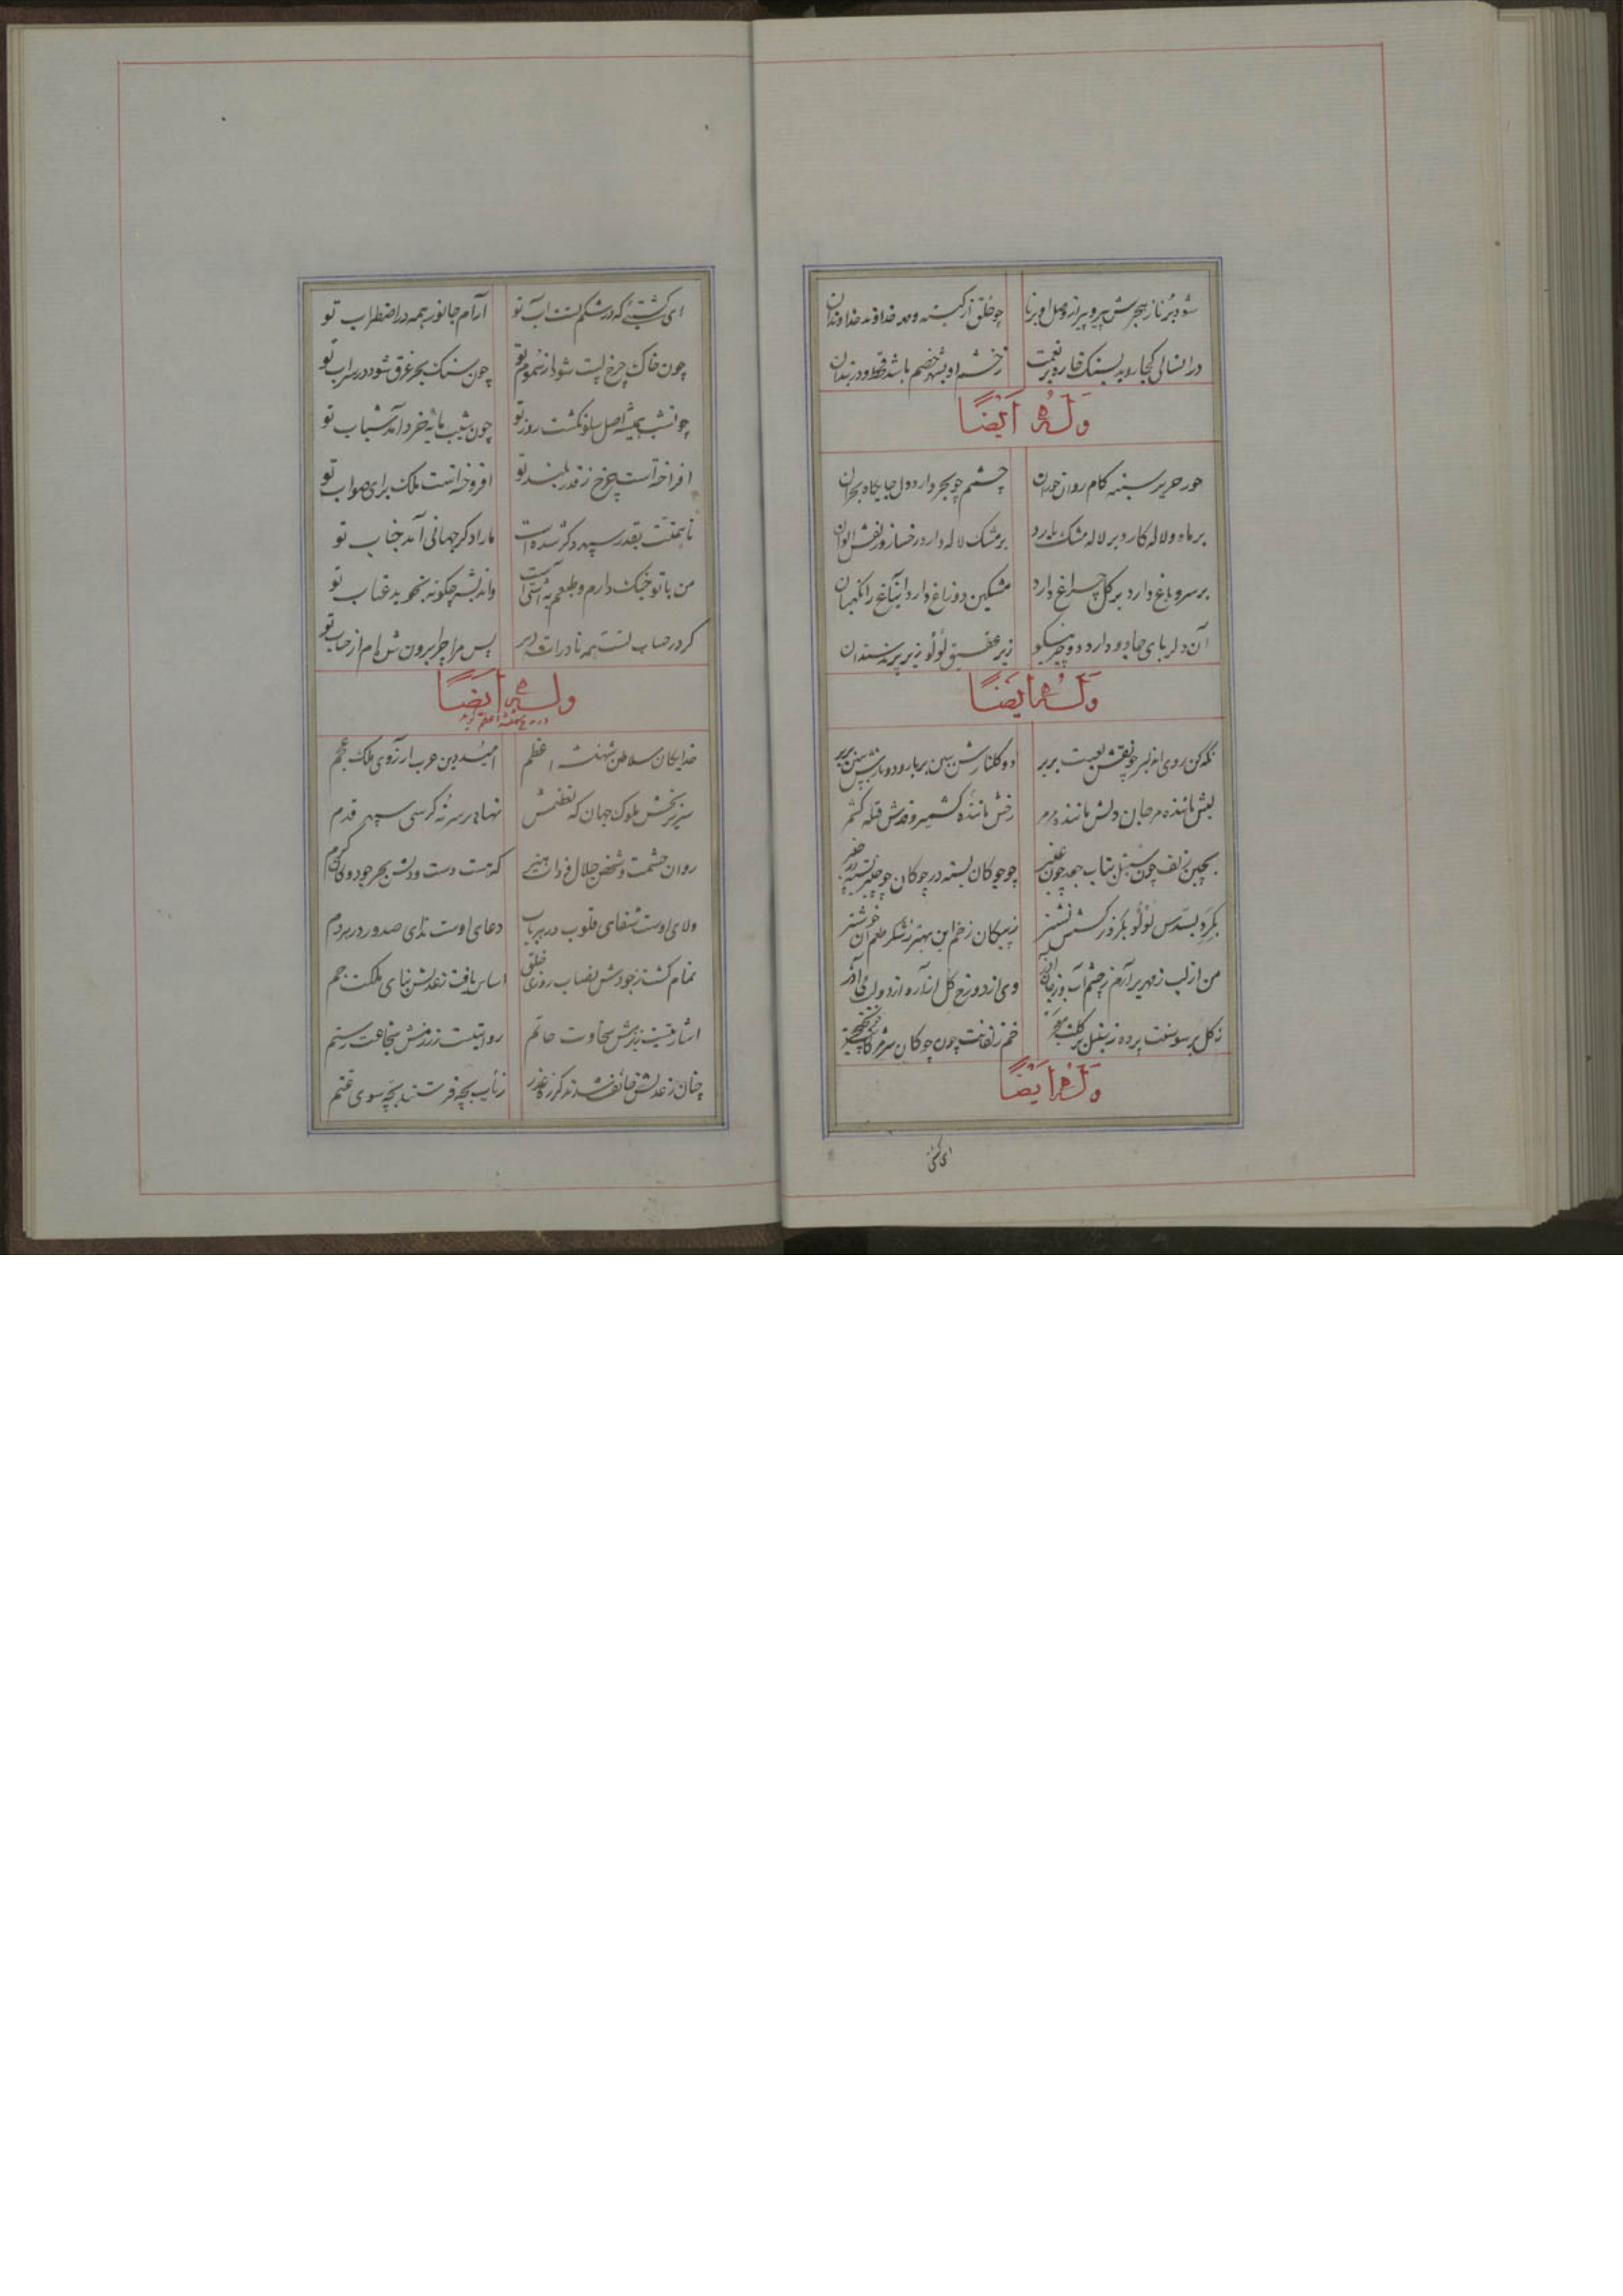 شود برنا ز هجرش پیر و پیر از وصل او برنا چو خلق از کینه و مهر خداوند خداوندان
در انسالی کجا روید بسنک خاره بر نعمت ز خشم او بشهر خصم باشد قحط و در بندان
وَلَهُ اَیْضًا
حور حریر سینه کام روان حوران چشمم چو بحر دارد دل جایگاه بحران
بر ماه و لاله کارد بر لاله مشک بارد بر مشک لاله دارد رخسار و زلفش الوان
بر سرو باغ دارد بر کل چراغ دارد مشکین دو زاغ دارد این باغ را نکهبان
آن دلربای جادو دارد دو چیز نیکو زیر عقیق لؤلؤ زیر پرند سندان
وَلَهُ اَیْضًا
نکه کن روی آن دلبر چو نقش لعبت بربر دو کلنارش ببین بربار و دو مارش ببین بربر
لبش ماننده مرجان دلش ماننده مرمر رخش ماننده کشمیر و قدش قبله کشمر
بچین زلف چون سنبل بتاب جعد چون عنبر چو چوکان بسته در چوکان چو چنبر بسته در چنبر
من از لب زمهریر آرم ز چشم آب وی از دوزخ کل
ز کل بر سوسنت پرده ز سنبل بر کلت خم زلفانت چون چوکان
وَلَهُ اَیْضًا
ای کشتی
ای کشتئی که در شکم تست آب تو آرام جانور همه در اضطراب تو
چون خاک چرخ پست شود از سموم تو چون سنک بحر غرق شود در سراب تو
چون شب همیشه اصل سلو کشت روز تو چون شیب مایه خرد آمد شباب تو
افراخته است چرخ ز قدر بلند تو افروخته است ملک برای صواب تو
تا همتت بقدر سپهر دکر شده است ما را دکر جهانی آمد جناب تو
من با تو جنک دارم و طبعم به آشتی است و اندیشه چکونه نجوید عتاب تو
کر در حساب تست همه نادرات دهر پس من چرا برون شده‌ام از حساب تو
وله ایضًا
در مدح شهنشاه اعظم کوید
خدایکان سلاطین شهنشه اعظم امید دین عرب آرزوی ملک عجم
سریر بخش ملوک جهان که تعظیمش نهاد بر سر نه کرسی سپهر قدم
روان حشمت و شخص جلال و ذات هنر که هست دست و دلش بحر جود و کان کرم
ولای اوست شفای قلوب در هر باب دعای اوست ندای صدور در هر دم
تمام کشت ز جودش نصاب روزی خلق اساس یافت ز عدلش بنای ملکت جم
اشارتیست ز بزمش سخاوت حاتم روایتیست ز رزمش شجاعت رستم
چنان ز عدلش خائف شدند کرک غدر ز ناب بچه فرستند بچه سوی غنم